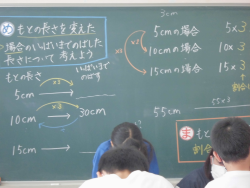 め もとの長さを変えた
場合のいっぱいまでのばした
長さについて考えよう
もとの長さ
いっぱいまで
のばす
5cm
×2
×2
10cm
30cm
15cm
5cmの場合 5×3
10cmの場合 10×3
15cmの場合 15×3
55cm
55×3
ま もとの
割合